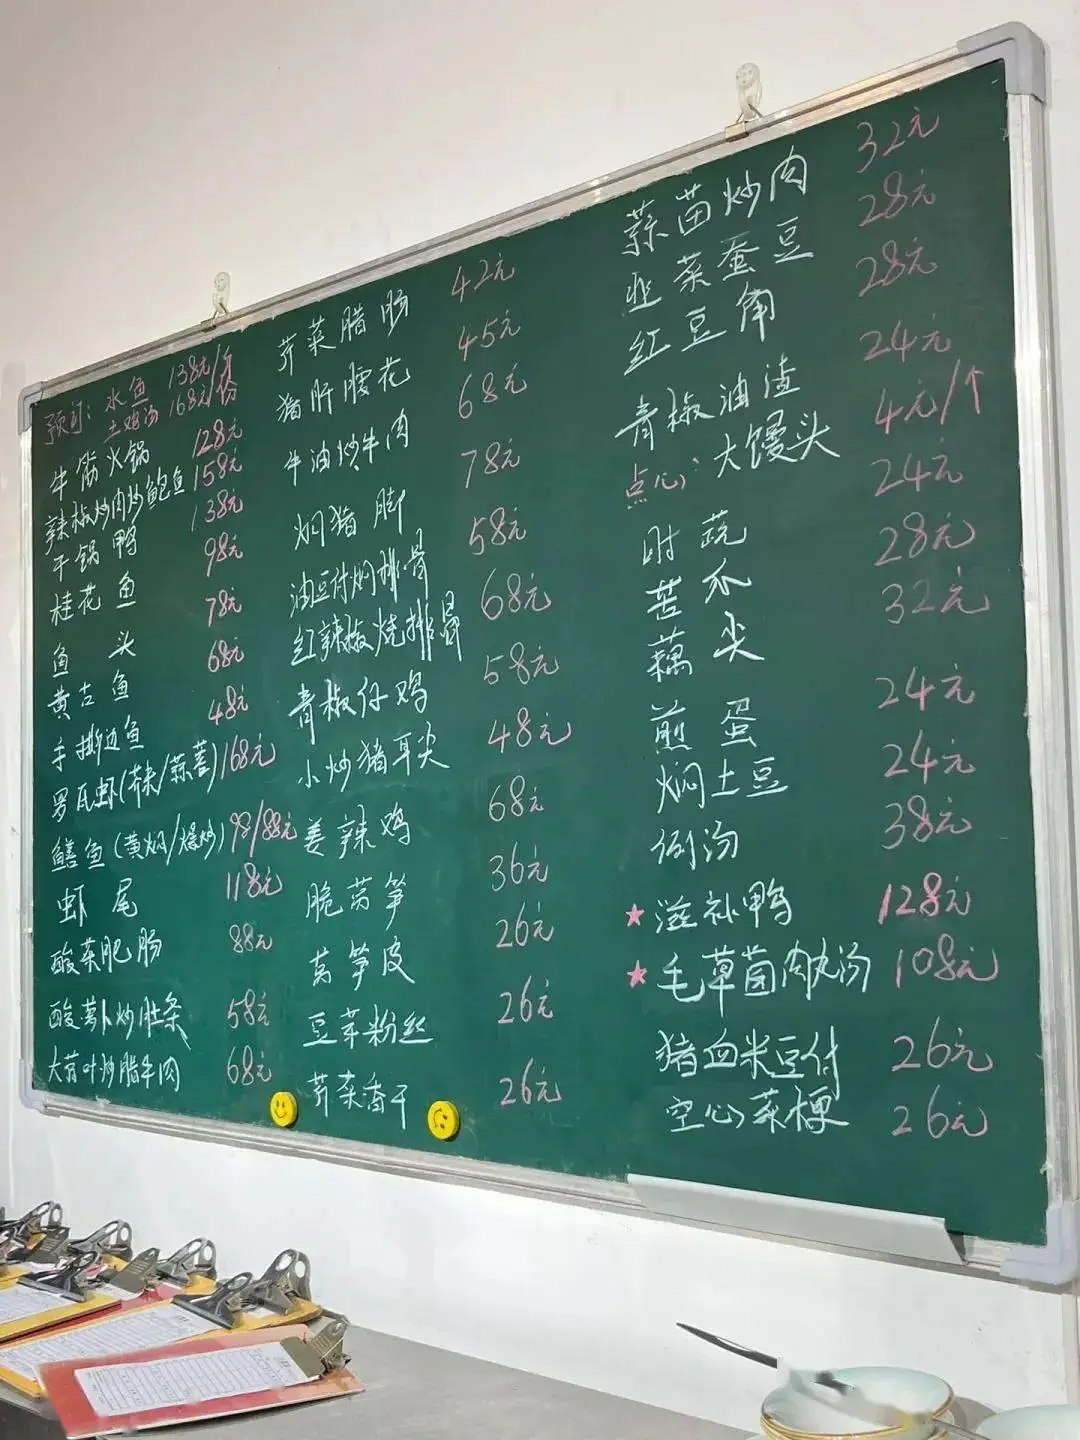 预订: 水鱼 138元/斤
土鸡汤 168元/份
牛筋火锅 128元
辣椒炒肉炒鲍鱼 158元
干锅鸭 138元
桂花鱼 98元
鱼头 78元
黄古鱼 68元
手撕边鱼 48元
罗氏虾(芥末/蒜蓉) 168元
鳝鱼(黄焖/爆炒) 98/88元
虾尾 118元
酸菜肥肠 88元
酸萝卜炒肚条 58元
大蒜叶炒腊牛肉 68元
芥菜腊肠 42元
猪肝腰花 45元
牛油炒牛肉 68元
焖猪脚 78元
油豆付焖排骨 58元
红辣椒烧排骨 68元
青椒仔鸡 58元
小炒猪耳尖 48元
姜辣鸡 68元
脆莴笋 36元
莴笋皮 26元
豆芽粉丝 26元
芥菜香干 26元
蒜苗炒肉 32元
韭菜蚕豆 28元
红豆角 28元
青椒油渣 24元
点心: 大馒头 4元/个
时蔬 24元
苦瓜 28元
藕尖 32元
煎蛋 24元
焖土豆 24元
例汤 38元
★滋补鸭 128元
★毛草菌肉丸汤 108元
猪血米豆付 26元
空心菜梗 26元